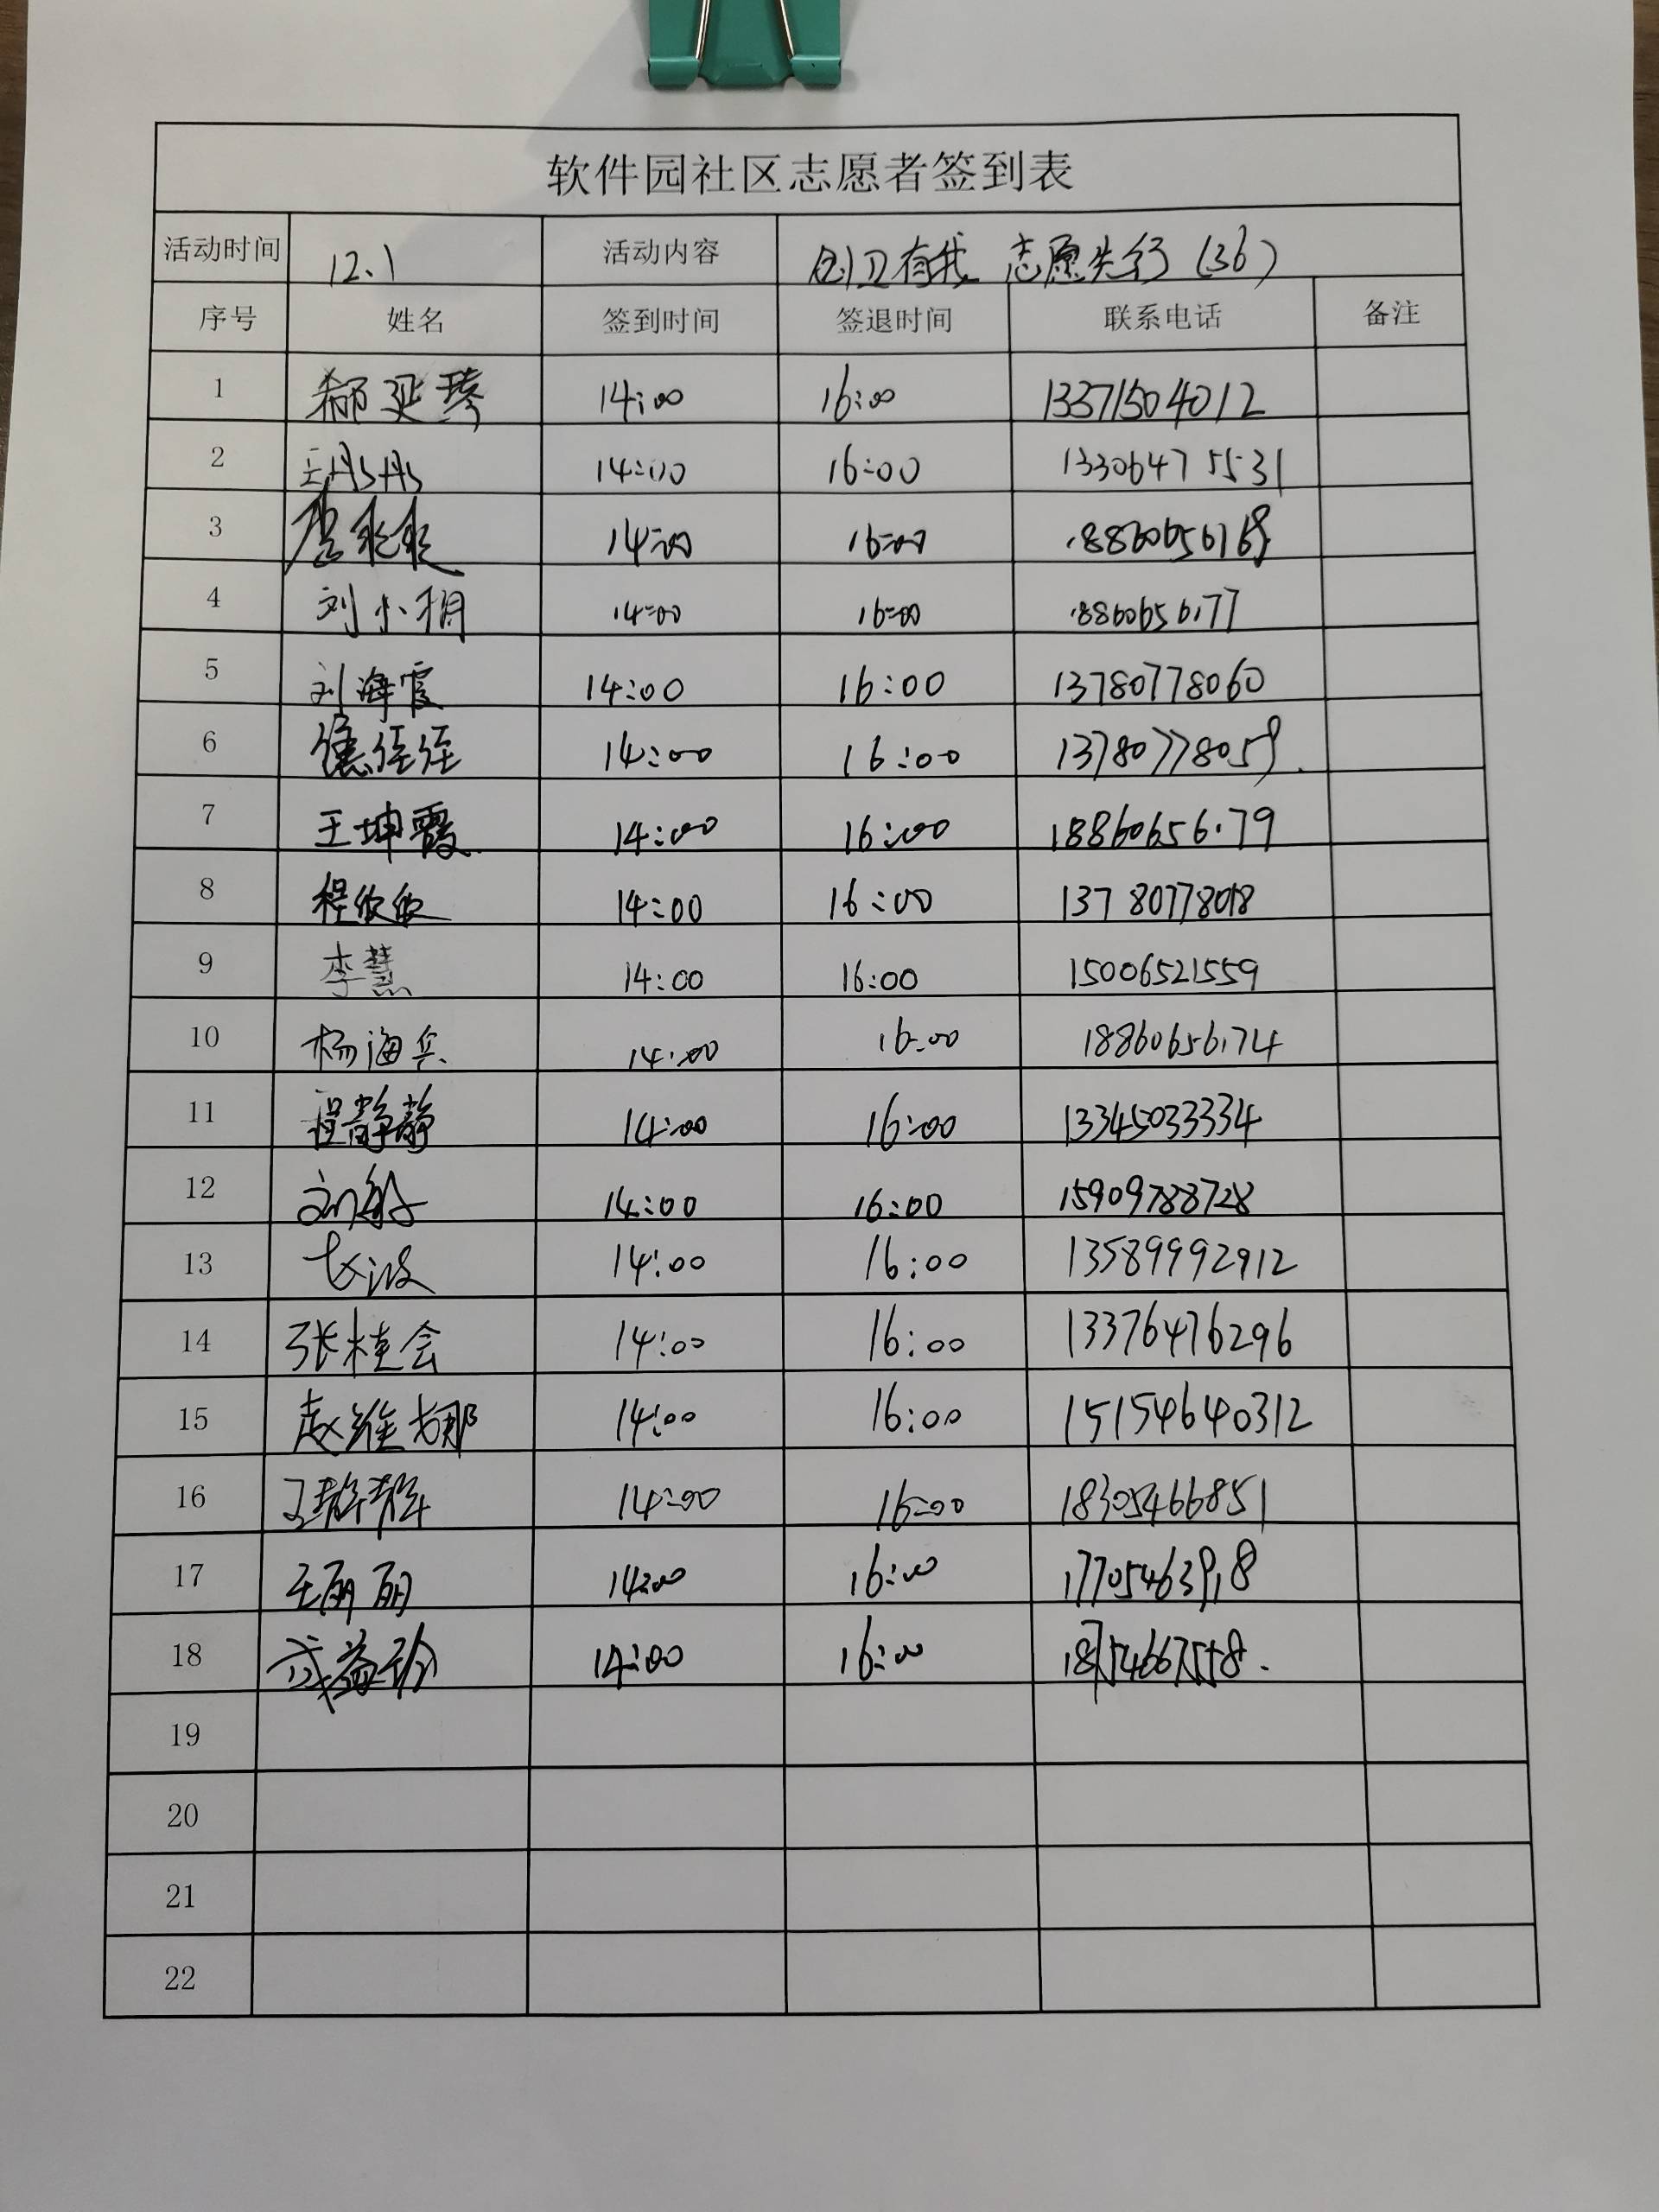 软件园社区志愿者签到表
活动时间 12.1 活动内容 创卫有我 志愿先行 (36)
序号 姓名 签到时间 签退时间 联系电话 备注
1 郗延琴 14:00 16:00 13371504012
2 王彤彤 14:00 16:00 13306475531
3 14:00 16:00 18860656169
4 刘小桐 14:00 16:00 18860656177
5 刘海霞 14:00 16:00 13780778060
6 14:00 16:00 13780778059
7 王坤霞 14:00 16:00 18860656179
8 程欣欣 14:00 16:00 13780778018
9 李慧 14:00 16:00 15006521559
10 杨海兵 14:00 16:00 18860656174
11 程静静 14:00 16:00 13345033334
12 14:00 16:00 15909788728
13 14:00 16:00 13589992912
14 张桂会 14:00 16:00 13376476296
15 赵维娜 14:00 16:00 15154640312
16 14:00 16:00 18305466851
17 王丽丽 14:00 16:00 17705463918
18 14:00 16:00
19
20
21
22